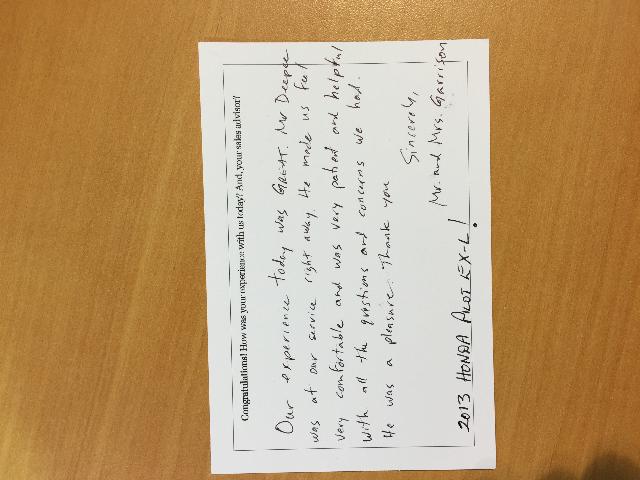 Congratulations! How was your experience with us today? And, your sales advisor?
Our experience today was GREAT. Mr Deepee
was at our service right away. He made us feel
very comfortable and was very patient and helpful
with all the questions and concerns we had.
He was a pleasure. Thank you
Sincerely,
Mr. and Mrs. Garrison
2013 HONDA PILOT EX-L!